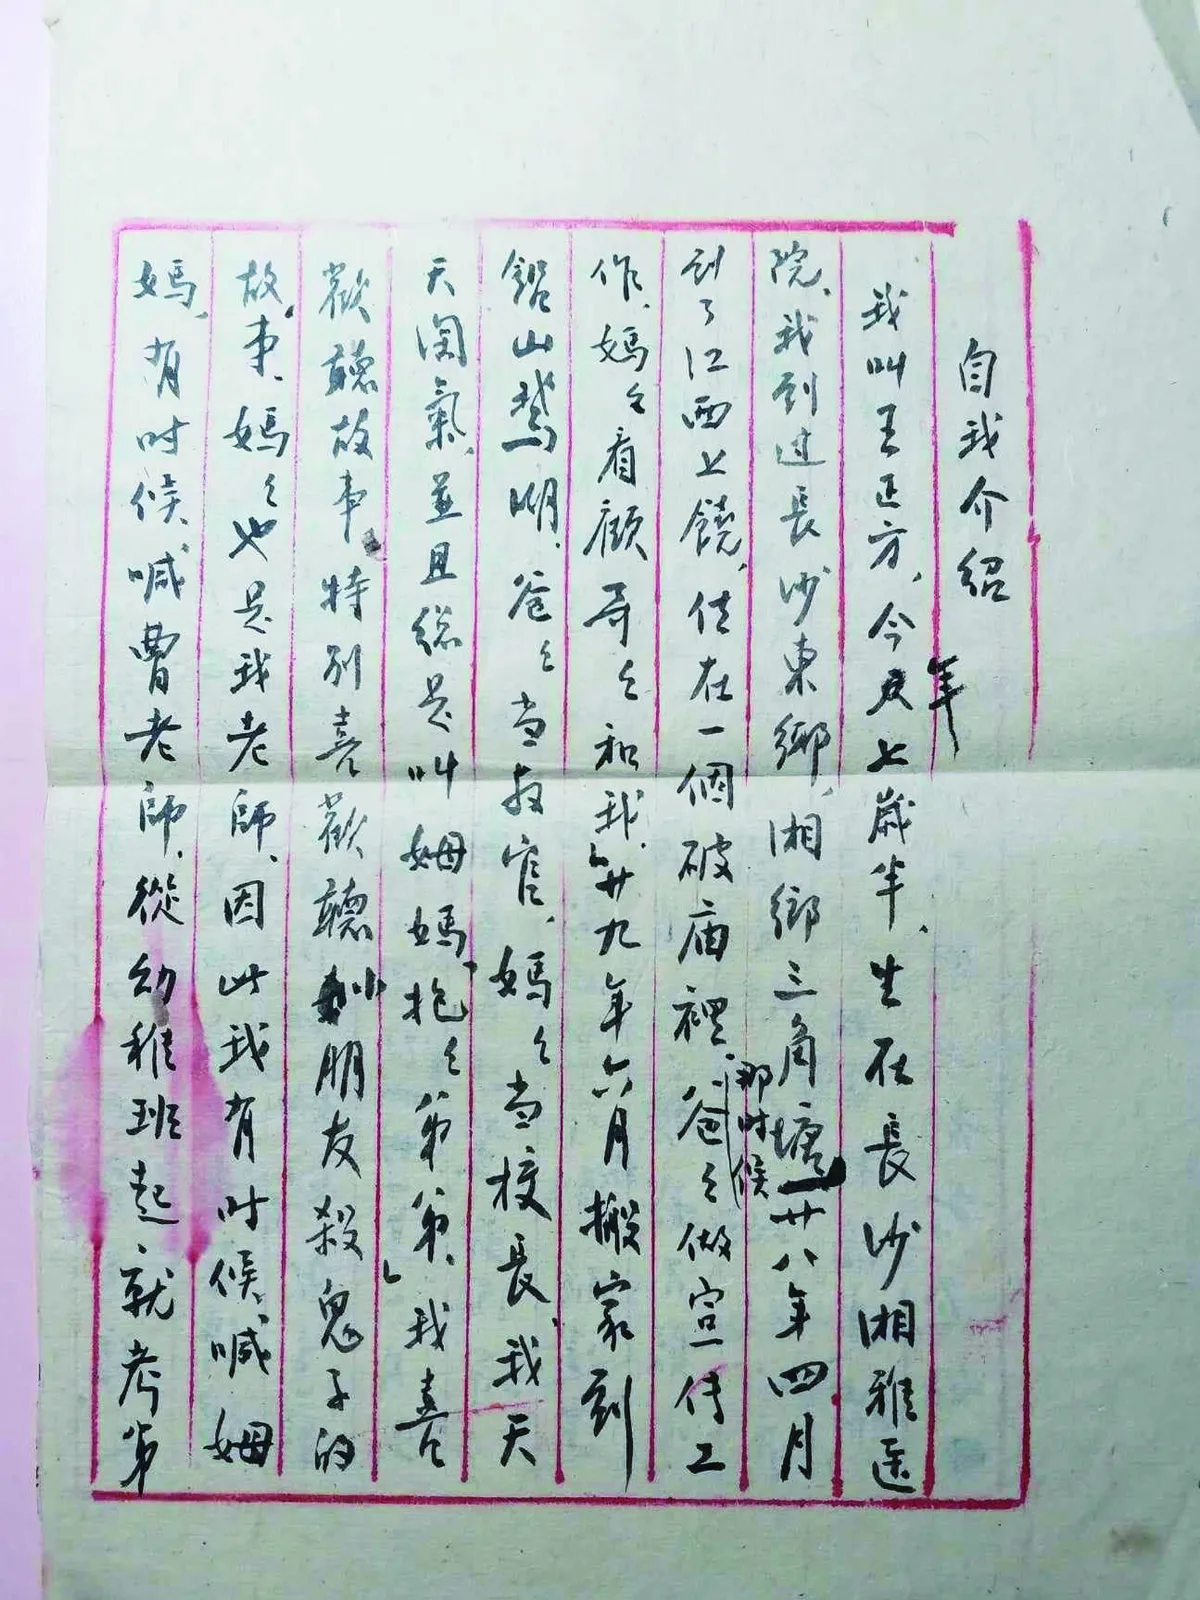 自我介紹
我叫王正方，今年七歲半、生在長沙湘雅医
院、我到过長沙東鄉，湘鄉三角塘，廿八年四月
到了江西上饒，住在一個破庙裡，那时候爸々做宣传工
作、媽々看顧哥々和我，廿九年六月搬家到
鉛山鵞湖、爸々当教官、媽々当校長、我天
天淘氣，並且總是叫姆媽「抱々弟弟」我喜
歡聽故事，特别喜歡聽小朋友殺鬼子的
故事、媽々也是我老師、因此我有时候，喊姆
媽、有时候，喊曹老師，從幼稚班起就考第